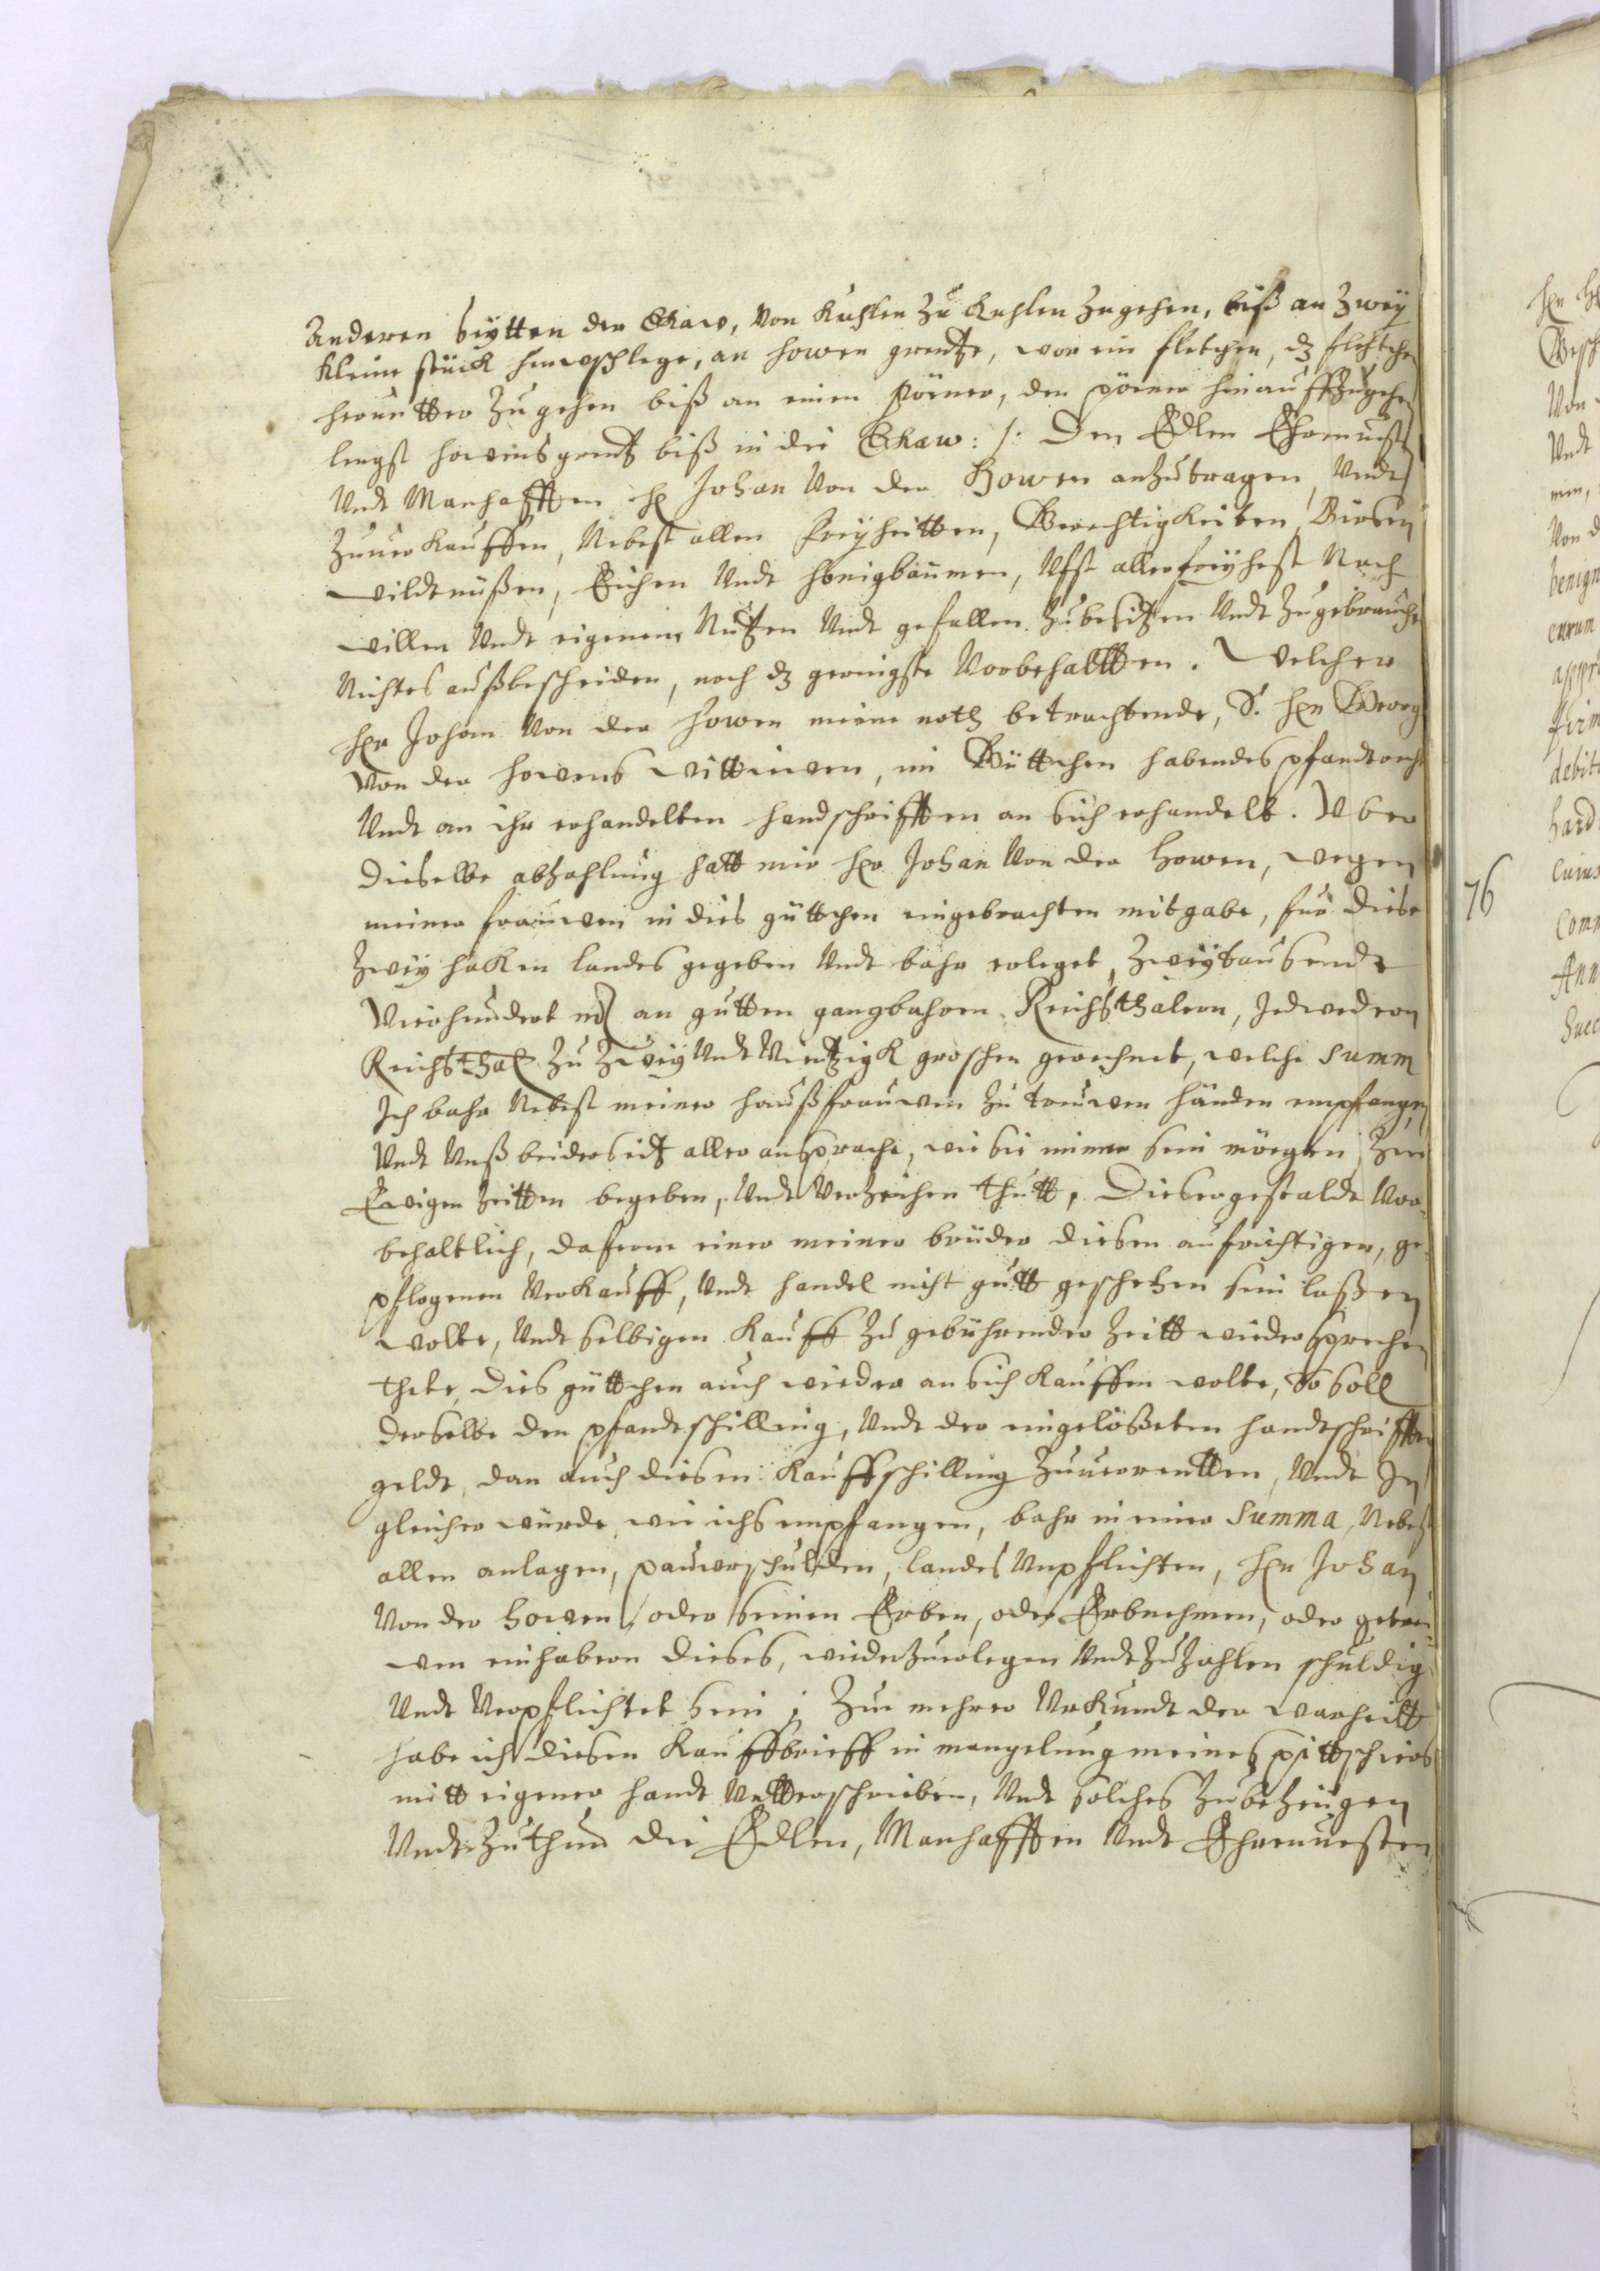 Anderen seytten der Ekaw, Von Kuhlen zu Kuhlen zugehen, biß an zwey
kleine stück hewschlege, an howen grentze, wor ein fletchen, dz flehtchen
heruntter zu gehen biß an einen Pörner, den pörner hinauffzugehen
lengst howens grentz biß in die Ekaw :/: Den Edlen Ehrnuest
Undt Manhafften H. Johan Von der Howen anzutragen, Undt
zuuerkauffen, Nebest allen freyheitten, Gerechtigkeiten, Birsen
wildtnüßen, Eichen Undt honigbäumen, Ufst allerfreyhest Nach
willen Undt eigenem Nutzen Undt gefallen zubesitzen Undt zugebrauchen
Nichtes außbescheiden, noch dz geringste Vorbehaltten. Welcher
Her Johan Von der Howen meine noth betrachtende, S. Hern Georg
Von der howens wittiwen, im Güttchen habendes pfandtrecht
Undt an ihr erhandelten handschrifften an sich erhandelt. Uber
dieselbe abzahlung hatt mir Her Johan Von der Howen, wegen
meiner frauwen in dies güttchen eingebrachten mitgabe, für diese
zwey haken landes gegeben Undt bahr erleget, zweytausendt
Vierhundert mk an gutten gangbahren Reichsthalern, Jedwedern
Reichsthal. zu zwey Undt Viertzigk groschen gerechnet, welche Summ
Ich bahr Nebest meiner haußfrauwen zu treuwen händen empfangen
Undt Unß beiderseitz aller ansprache, wie sie immer sein möegten, zu
Ewigen zeitten begeben, Undt Verzeichen thutt, Diesergestaldt Vor-
behaltlich, daferne einer meiner brüder diesen aufrichtigen, ge-
pflogenen Verkauff, Undt handel nicht gutt geschehen sein laßen
wolte, Undt selbigen Kauff zu gebührender zeitt wiedersprechen
thete, dies güttchen auch wieder an sich kauffen wolte, So soll
derselbe den pfandtschilling, Undt der eingelößeten handtschrifften
geldt, dan auch diesen Kauffschilling zuuorentten, Undt In
gleicher würde, wie ichs empfangen, bahr in einer Summa, Nebest
allen anlagen, paurschulden, landes Unpflichten, Hern Johan
Von der howen, oder seinen Erben, oder Erbnehmen, oder getreu-
wen einhabern dieses, wiederzuerlegen Undt zuzahlen schuldig
Undt Verpflichtet sein; Zu mehrer Urkundt der warheitt
habe ich diesen Kauffbrieff in mangelung meines pittschiers
mitt eigener handt Untterschrieben, Undt solches zubezeugen
Undt zuthun die Edlen, Manhafften Undt Ehrnuesten
76